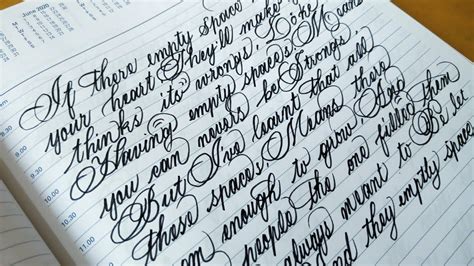 June 2020
If there empty space
your heart They'll make you
thinks its wrongs, Like
Having empty spaces Means
you can nevers be Strongs
But I've learnt that all
these spaces, Means there
room enough to grow, And
people the one filling them
always meant to Be let
and they empty space
9.30
10.00
10.30
11.00